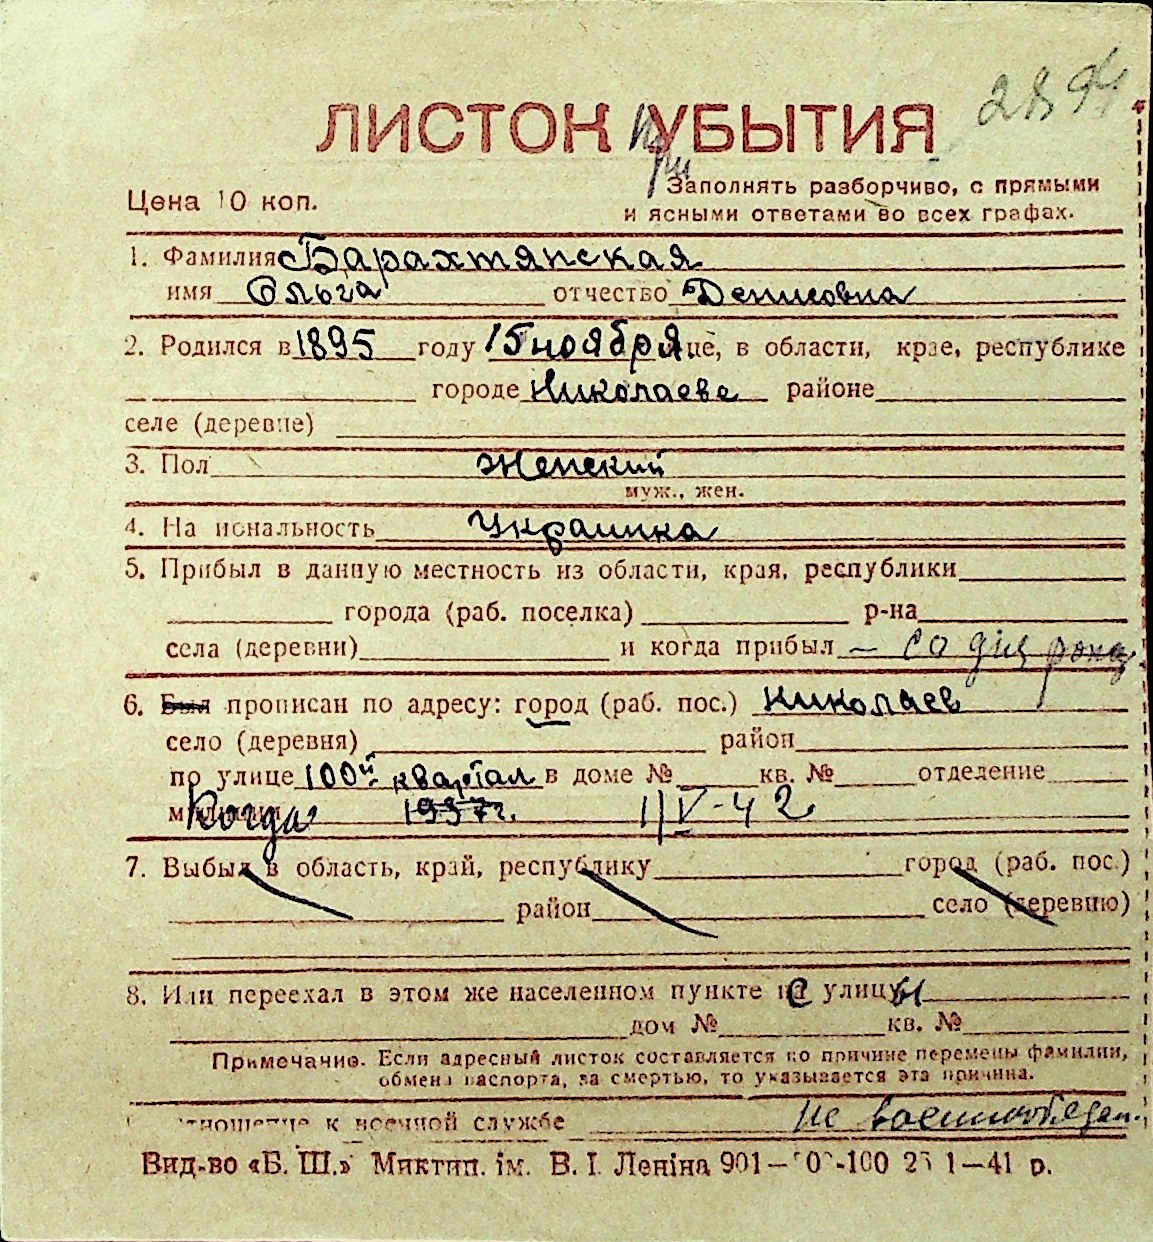 2894
ЛИСТОК при УБЫТИЯ
Цена 10 коп.
Заполнять разборчиво, с прямыми
и ясными ответами во всех графах.
1. Фамилия Барахтянская
имя Ольга отчество Денисовна
2. Родился в 1895 году 15 ноября це, в области, крае, республике
городе Николаеве районе
селе (деревне)
3. Пол Женский
муж., жен.
4. На иональность Украинка
5. Прибыл в данную местность из области, края, республики
города (раб. поселка) р-на
села (деревни) и когда прибыл — со дня рожд
6. Был прописан по адресу: город (раб. пос.) Николаев
село (деревня) район
по улице 100й квартал в доме № кв. № отделение
милиции Когда 1937г. 1/V-42
7. Выбыл в область, край, республику город (раб. пос.)
район село (деревню)
8. Или переехал в этом же населенном пункте с улицы
дом № кв. №
Примечание. Если адресный листок составляется по причине перемены фамилии,
обмена паспорта, за смертью, то указывается эта причина.
тношение к военной службе не военнообязан.
Вид-во «Б. Ш.» Миктип. ім. В. І. Леніна 901— 0 -100 25 1—41 р.